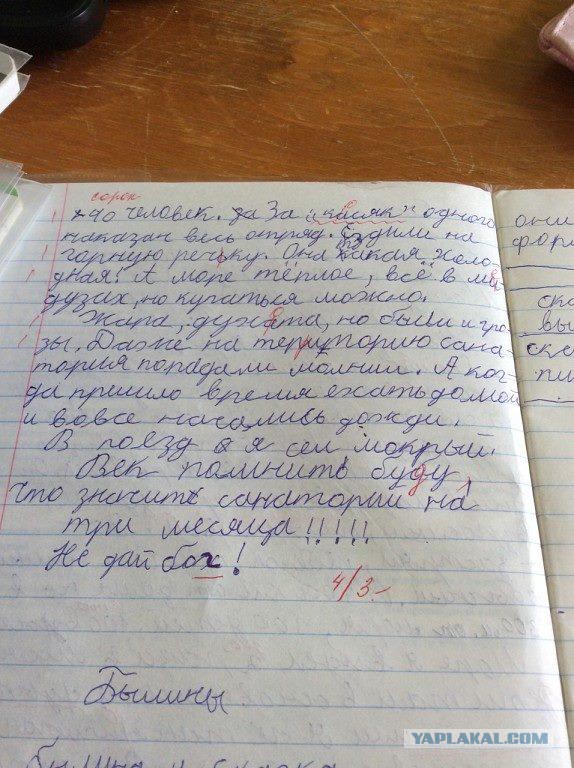 сорок
40 человек. За "касяк" одного
наказан весь отряд. Ездили на
горную речьку. Она такая холо-
дная! А море тёплое, всё в ме-
дузах, но купаться можно.
Жара, духата, но были и гро-
зы. Даже на територию сана-
тория попадали молнии. А ког-
да пришло время ехать домой
и вовсе начались дожди.
В поезд я сел мокрый.
Век помнить буду,
что значить санаторий на
три месяца!!!!!
Не дай бох!
4/3-
Былины
былина и сказка
они
фор
ска
вы
ске
пи
YAPLAKAL.COM